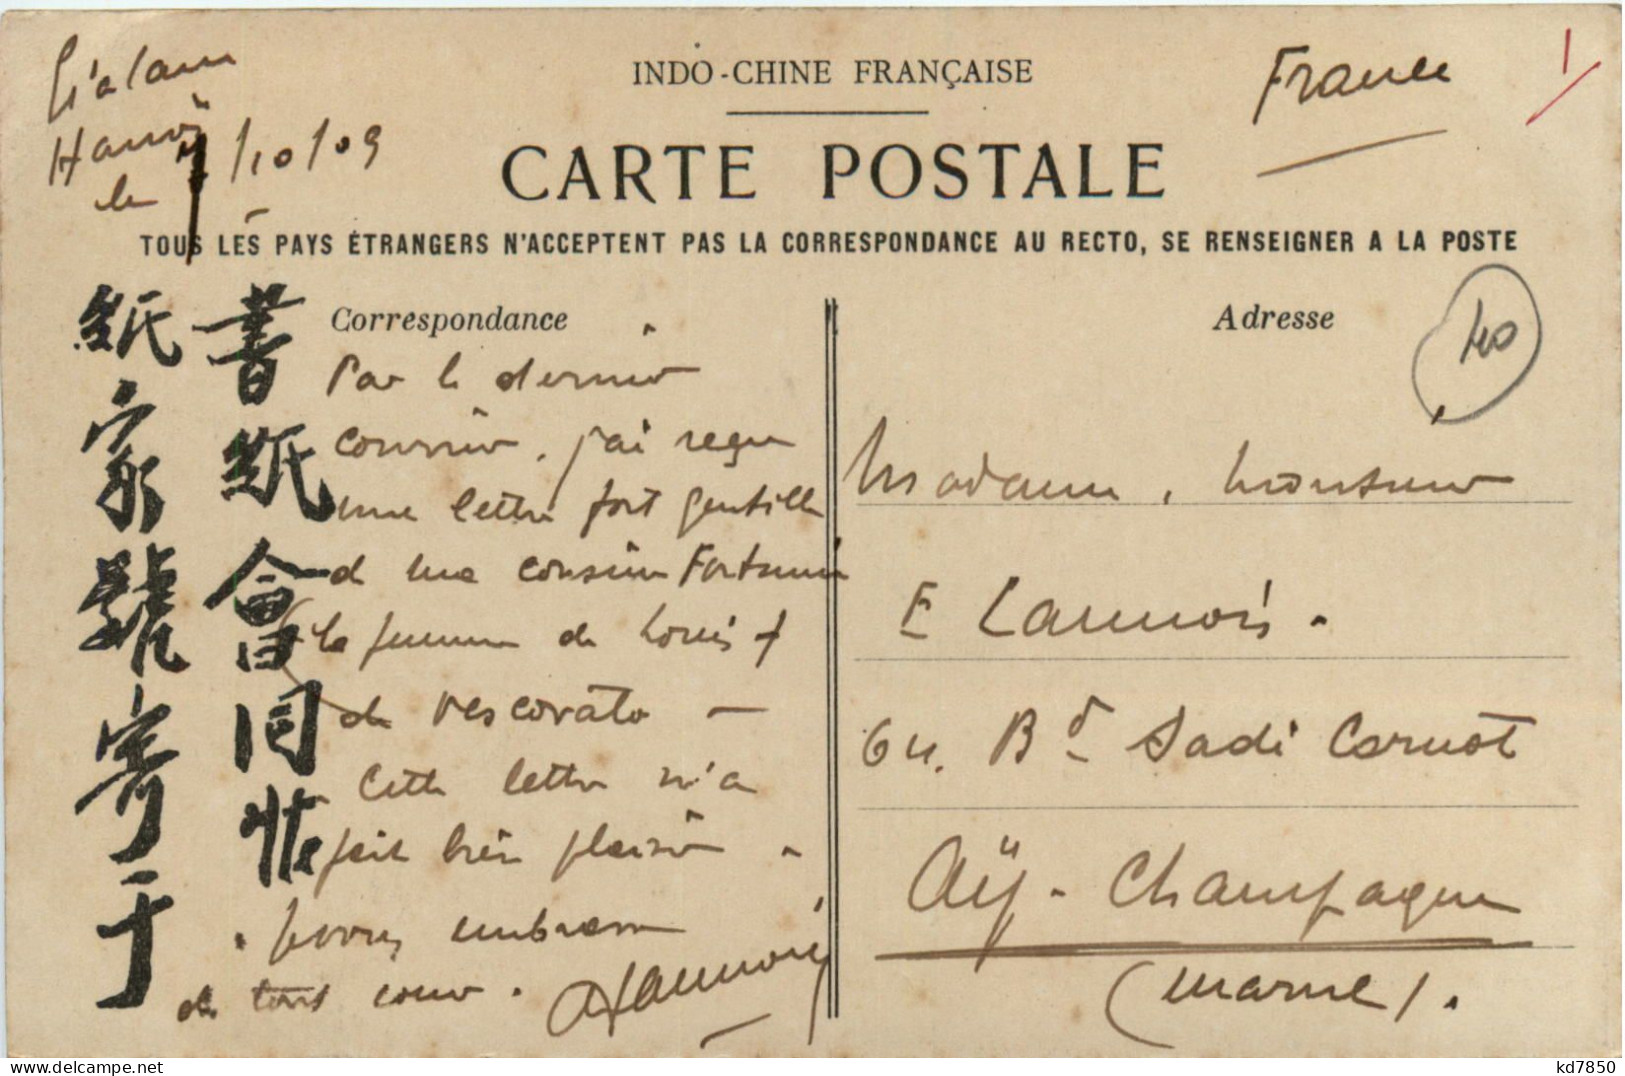 Gialam
Hanoï
le 7/10/09
INDO-CHINE FRANÇAISE
France
1/
CARTE POSTALE
TOUS LES PAYS ÉTRANGERS N'ACCEPTENT PAS LA CORRESPONDANCE AU RECTO, SE RENSEIGNER A LA POSTE
書紙會同
紙家號寄于
Correspondance
Par le dernier
courrier, j'ai reçu
une lettre fort gentille
de ma cousine Fortunée
(la femme de Louis)
de Vescovato —
Cette lettre m'a
fait bien plaisir.
Je vous embrasse
de tout cœur.
Lannois
Adresse
40
Madame, Monsieur
E Lannois.
64. Bd Sadi Carnot
Aÿ-Champagne
(Marne).
kd7850